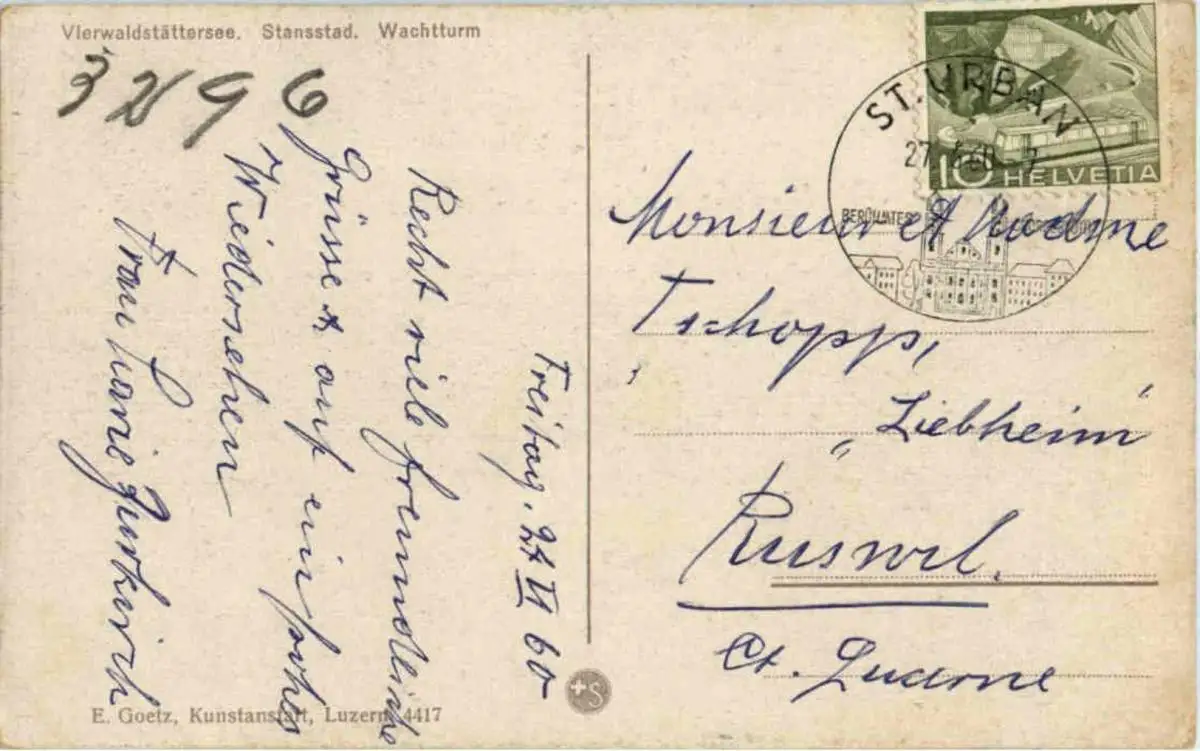 Vierwaldstättersee. Stansstad. Wachtturm
3296
Freitag. 24 VI 60
Recht viele freundliche
Grüsse & auf ein frohes
Wiedersehen
Frau Marie Zurkirch
E. Goetz, Kunstanstalt, Luzern 4417
+S
HELVETIA
10
ST. URBAN
27. 6.60 - 7
BERÜHMTES
Monsieur et Madme
Tschopp,
„Liebheim"
Ruswil.
Ct. Lucerne